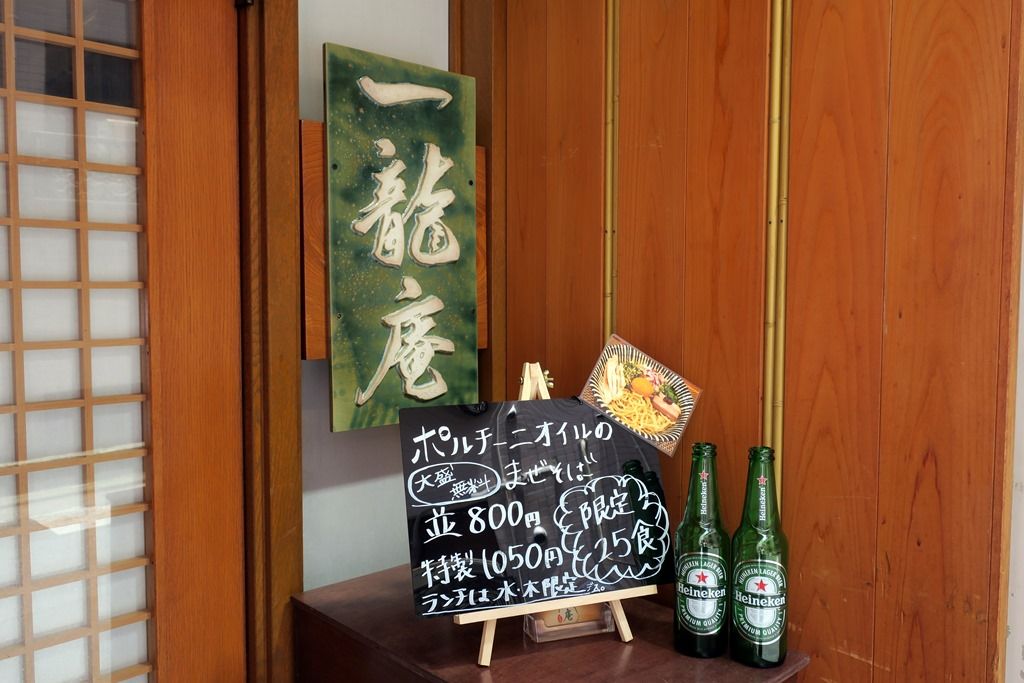 一龍庵
ポルチーニオイルの
大盛
無料
まぜそば
並800円
限定
25食
特製1050円
ランチは水・木限定
庵
Heineken
Heineken
HEINEKEN LAGER BEER
Heineken
PREMIUM QUALITY
HEINEKEN LAGER BEER
Heineken
PREMIUM QUALITY